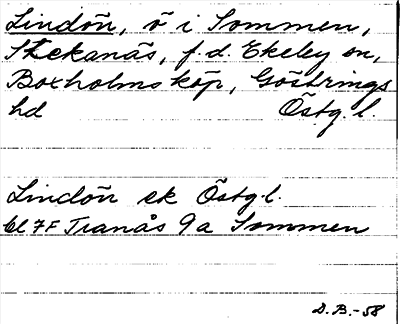 Lindön, ö i Sommen,
Stekanäs, f.d. Ekeby sn,
Boxholms köp, Göstrings
hd Östg. l.
Lindön ek Östg. l.
bl 7F Tranås 9a Sommen
D.B.-58